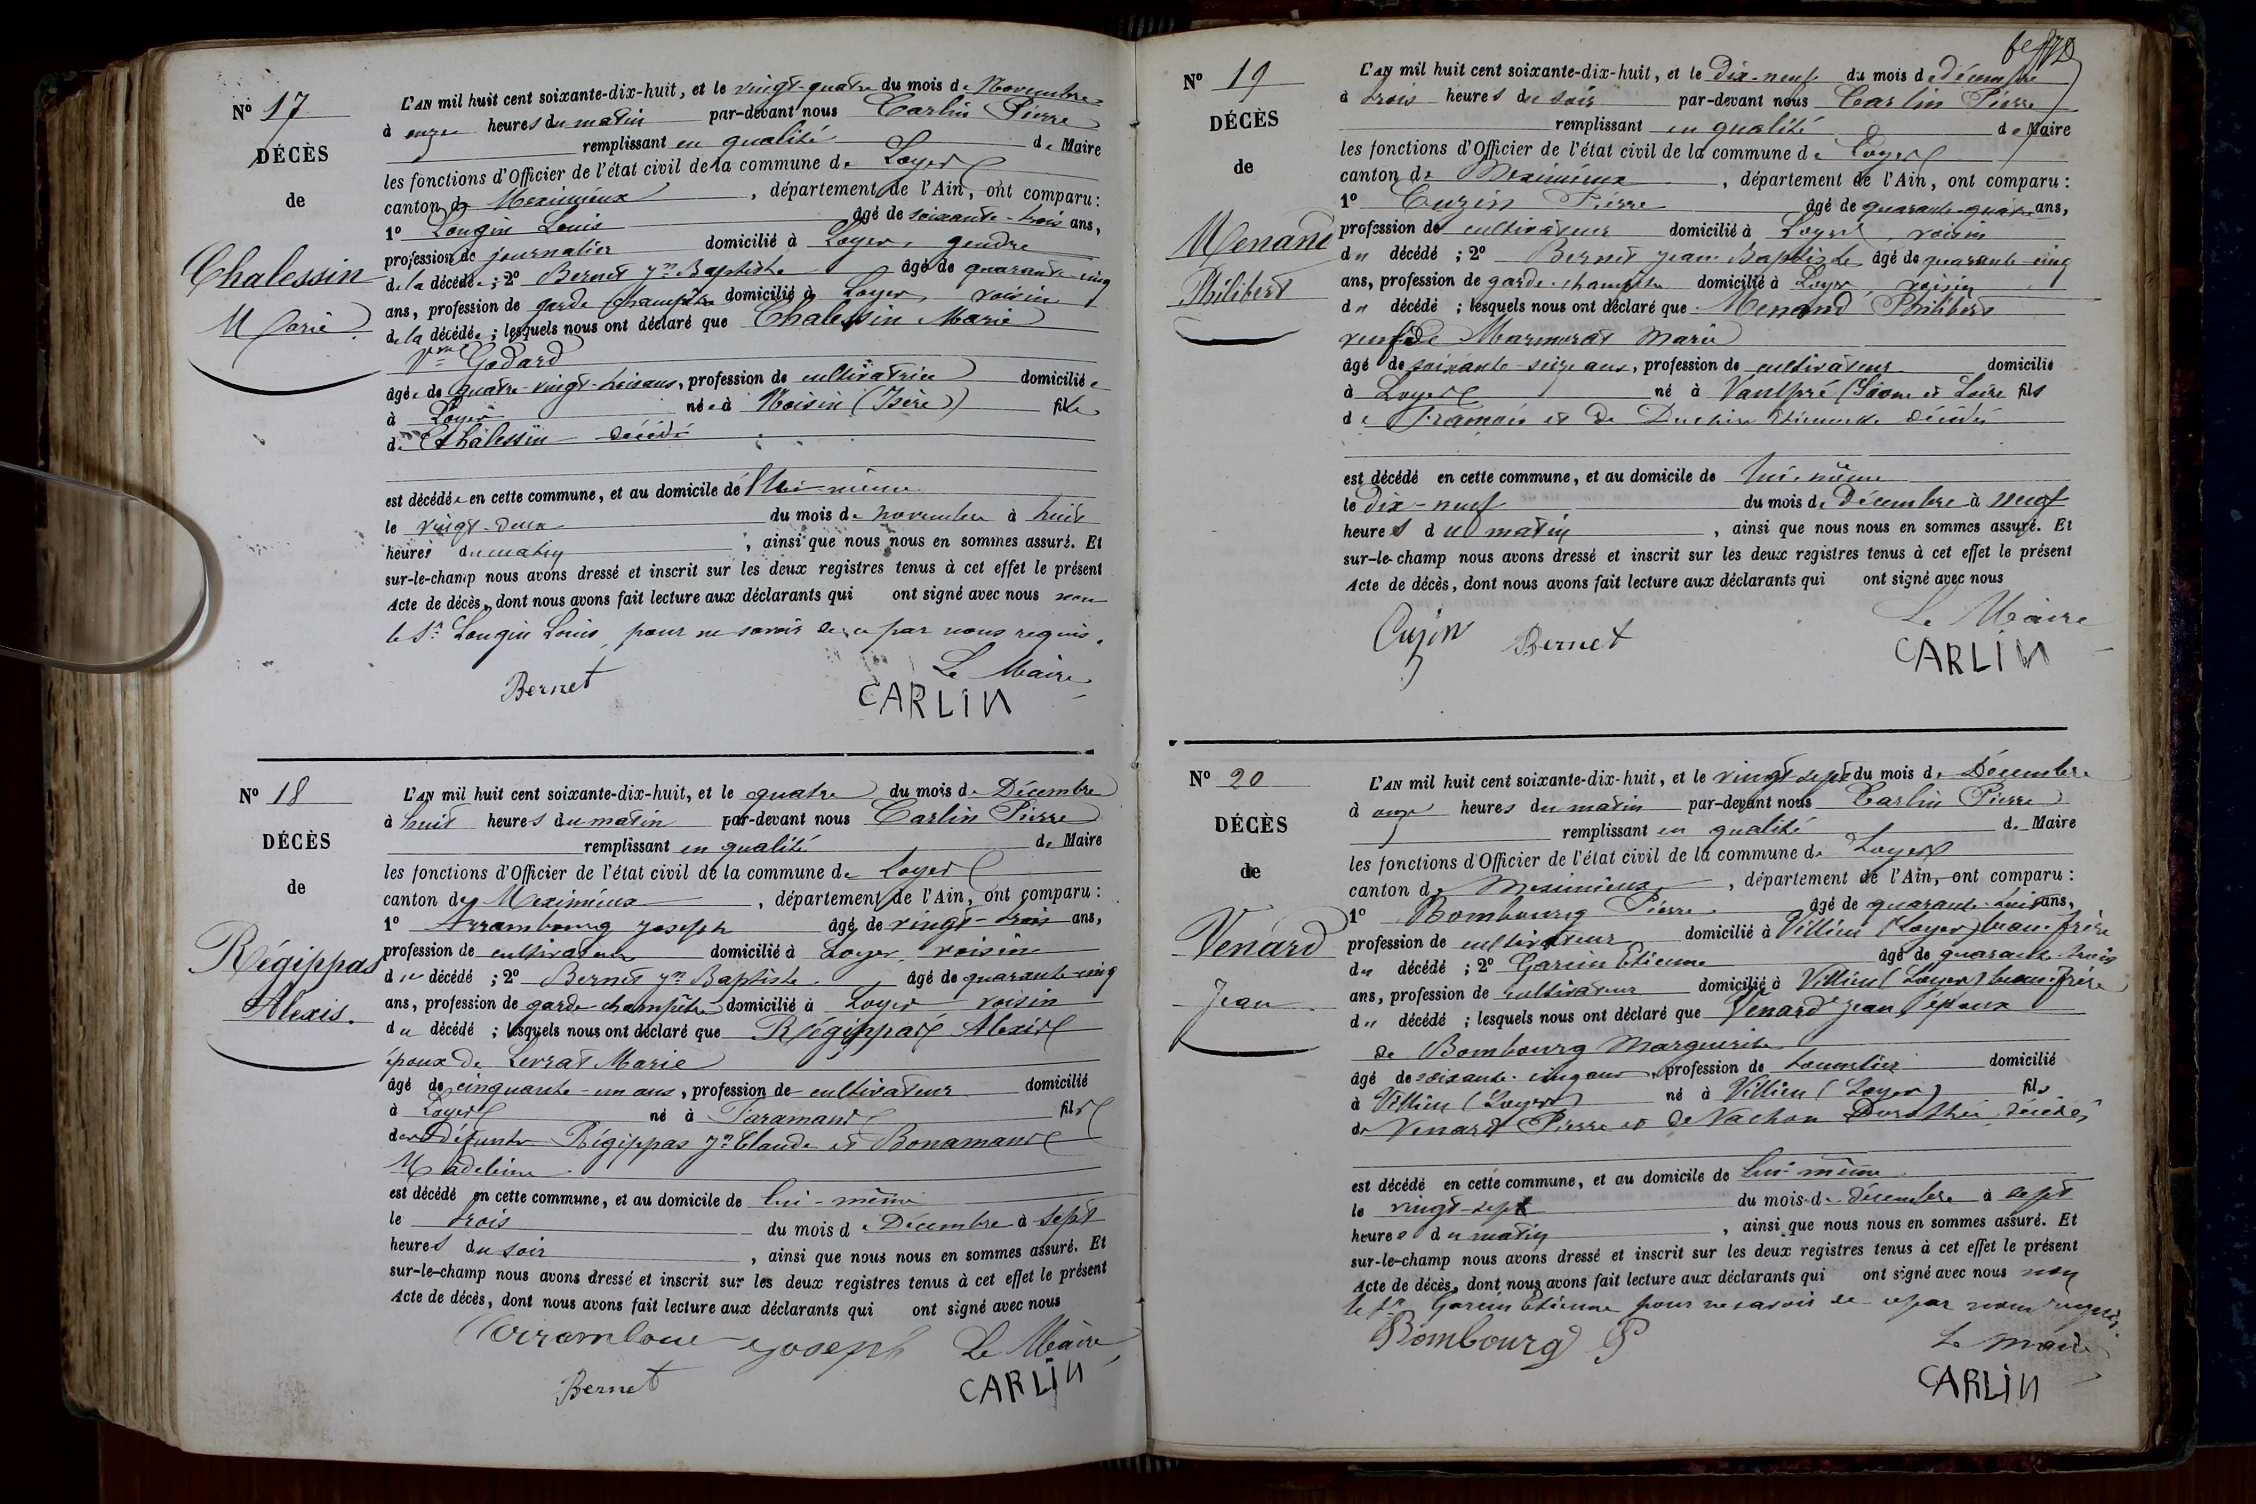 Nº 17
DÉCÈS
de
Chalessin
Marie
L'AN mil huit cent soixante-dix-huit, et le vingt-quatre du mois de Novembre
à onze heures du matin par-devant nous Carlin Pierre
remplissant en qualité de Maire
les fonctions d'Officier de l'état civil de la commune de Loyes
canton de Meximieux, département de l'Ain, ont comparu :
1º Longin Louis âgé de soixante-trois ans,
profession de journalier domicilié à Loyes, gendre
de la décédée ; 2º Bernet Jn Baptiste âgé de quarante-cinq
ans, profession de garde champêtre domicilié à Loyes, voisin
de la décédée ; lesquels nous ont déclaré que Chalessin Marie
Vve Godard
âgée de quatre-vingt-trois ans, profession de cultivatrice domiciliée
à Loyes née à (Isère) fille
de Chalessin décédé
est décédée en cette commune, et au domicile de elle-même
le vingt-deux du mois de novembre à huit
heures du matin, ainsi que nous nous en sommes assuré. Et
sur-le-champ nous avons dressé et inscrit sur les deux registres tenus à cet effet le présent
Acte de décès, dont nous avons fait lecture aux déclarants qui ont signé avec nous non
le Sr Longin Louis, pour ne savoir de ce par nous requis.
Bernet
Le Maire
CARLIN
Nº 18
DÉCÈS
de
Régippas
Alexis.
L'AN mil huit cent soixante-dix-huit, et le quatre du mois de Décembre
à huit heures du matin par-devant nous Carlin Pierre
remplissant en qualité de Maire
les fonctions d'Officier de l'état civil de la commune de Loyes
canton de Meximieux, département de l'Ain, ont comparu :
1º Arrambourg Joseph âgé de vingt-trois ans,
profession de cultivateur domicilié à Loyes, voisin
du décédé ; 2º Bernet Jn Baptiste âgé de quarante-cinq
ans, profession de garde-champêtre domicilié à Loyes voisin
du décédé ; lesquels nous ont déclaré que Régippas Alexis
époux de Levrat Marie
âgé de cinquante-un ans, profession de cultivateur domicilié
à Loyes né à Faramans fils
des Défunts Régippas Jn Claude et Bonamant
Madeleine
est décédé en cette commune, et au domicile de lui-même
le trois du mois de Décembre à sept
heures du soir, ainsi que nous nous en sommes assuré. Et
sur-le-champ nous avons dressé et inscrit sur les deux registres tenus à cet effet le présent
Acte de décès, dont nous avons fait lecture aux déclarants qui ont signé avec nous
Arrambour Joseph
Le Maire
Bernet
CARLIN
Nº 19
DÉCÈS
de
Menand
Philibert
L'AN mil huit cent soixante-dix-huit, et le Dix-neuf du mois de décembre
à trois heures du soir par-devant nous Carlin Pierre
remplissant en qualité de Maire
les fonctions d'Officier de l'état civil de la commune de Loyes
canton de Meximieux, département de l'Ain, ont comparu :
1º Cuzin Pierre âgé de quarante-quatre ans,
profession de cultivateur domicilié à Loyes, voisin
du décédé ; 2º Bernet Jean Baptiste âgé de quarante-cinq
ans, profession de garde-champêtre domicilié à Loyes, voisin
du décédé ; lesquels nous ont déclaré que Menand Philibert
veuf de Marmorat Marie
âgé de soixante-seize ans, profession de cultivateur domicilié
à Loyes né à Vautpré (Saône et Loire fils
de François et de décédés
est décédé en cette commune, et au domicile de lui-même
le Dix-neuf du mois de Décembre à neuf
heures du matin, ainsi que nous nous en sommes assuré. Et
sur-le-champ nous avons dressé et inscrit sur les deux registres tenus à cet effet le présent
Acte de décès, dont nous avons fait lecture aux déclarants qui ont signé avec nous
Cuzin
Bernet
Le Maire
CARLIN
Nº 20
DÉCÈS
de
Venard
Jean
L'AN mil huit cent soixante-dix-huit, et le vingt-sept du mois de Décembre
à onze heures du matin par-devant nous Carlin Pierre
remplissant en qualité de Maire
les fonctions d'Officier de l'état civil de la commune de Loyes
canton de Meximieux, département de l'Ain, ont comparu :
1º Bombourg Pierre âgé de quarante-huit ans,
profession de cultivateur domicilié à Villieu (Loyes) beau-frère
du décédé ; 2º Garcin Etienne âgé de quarante-trois
ans, profession de cultivateur domicilié à Villieu (Loyes) beau-frère
du décédé ; lesquels nous ont déclaré que Venard Jean époux
de Bombourg Marguerite
âgé de soixante-cinq ans, profession de tonnelier domicilié
à Villieu (Loyes) né à Villieu (Loyes) fils
de Venard Pierre et de Vachon Dorothée décédés
est décédé en cette commune, et au domicile de lui-même
le vingt-sept du mois de décembre à sept
heures du matin, ainsi que nous nous en sommes assuré. Et
sur-le-champ nous avons dressé et inscrit sur les deux registres tenus à cet effet le présent
Acte de décès, dont nous avons fait lecture aux déclarants qui ont signé avec nous non
le Sr Garcin Etienne pour ne savoir de ce par nous requis.
Bombourg P
Le maire
CARLIN